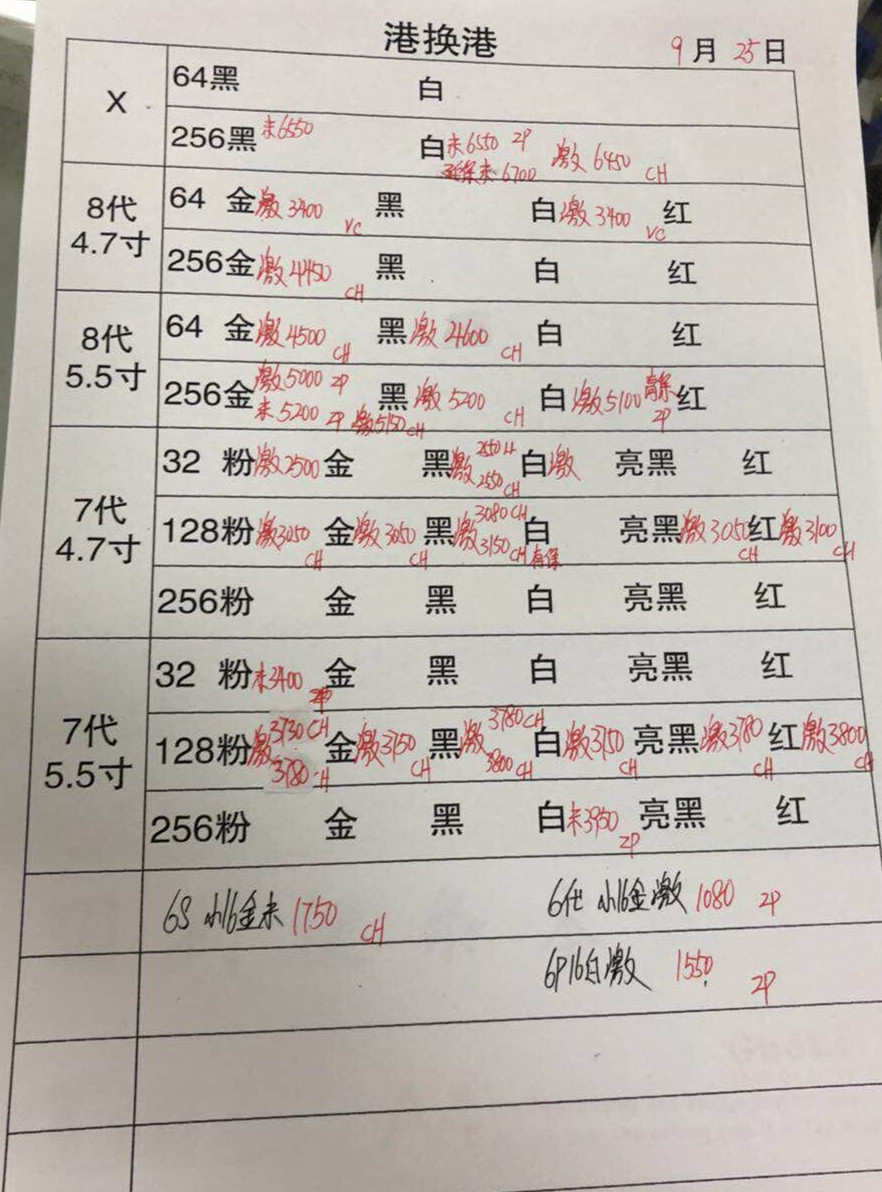 港换港 9月25日
X
64黑 白
256黑 未6550 白 未6550 ZP 激6450 CH
未6700
8代
4.7寸
64 金 激3400 VC 黑 白 激3400 VC 红
256金 激4450 CH 黑 白 红
8代
5.5寸
64 金 激4500 CH 黑 激4600 CH 白 红
256金 激5000 ZP 黑 激5200 CH 白 激5100 ZP 红
未5200 ZP 激5150 CH
7代
4.7寸
32 粉 激2500 金 黑 激 2550 CH 白 激 亮黑 红
128粉 激3050 CH 金 激3050 CH 黑 激 3080 CH 白 亮黑 激3050 CH 红 激3100 CH
3150 CH 有保
256粉 金 黑 白 亮黑 红
7代
5.5寸
32 粉 未3400 金 黑 白 亮黑 红
128粉 激 3730 CH 金 激3750 CH 黑 激 3780 CH 白 激3750 CH 亮黑 激3780 CH 红 激3800 CH
3780 CH 3800 CH
256粉 金 黑 白 未3950 ZP 亮黑 红
6S 小16金未 1750 CH 6代 小16金激 1080 ZP
6P16白激 1550 ZP